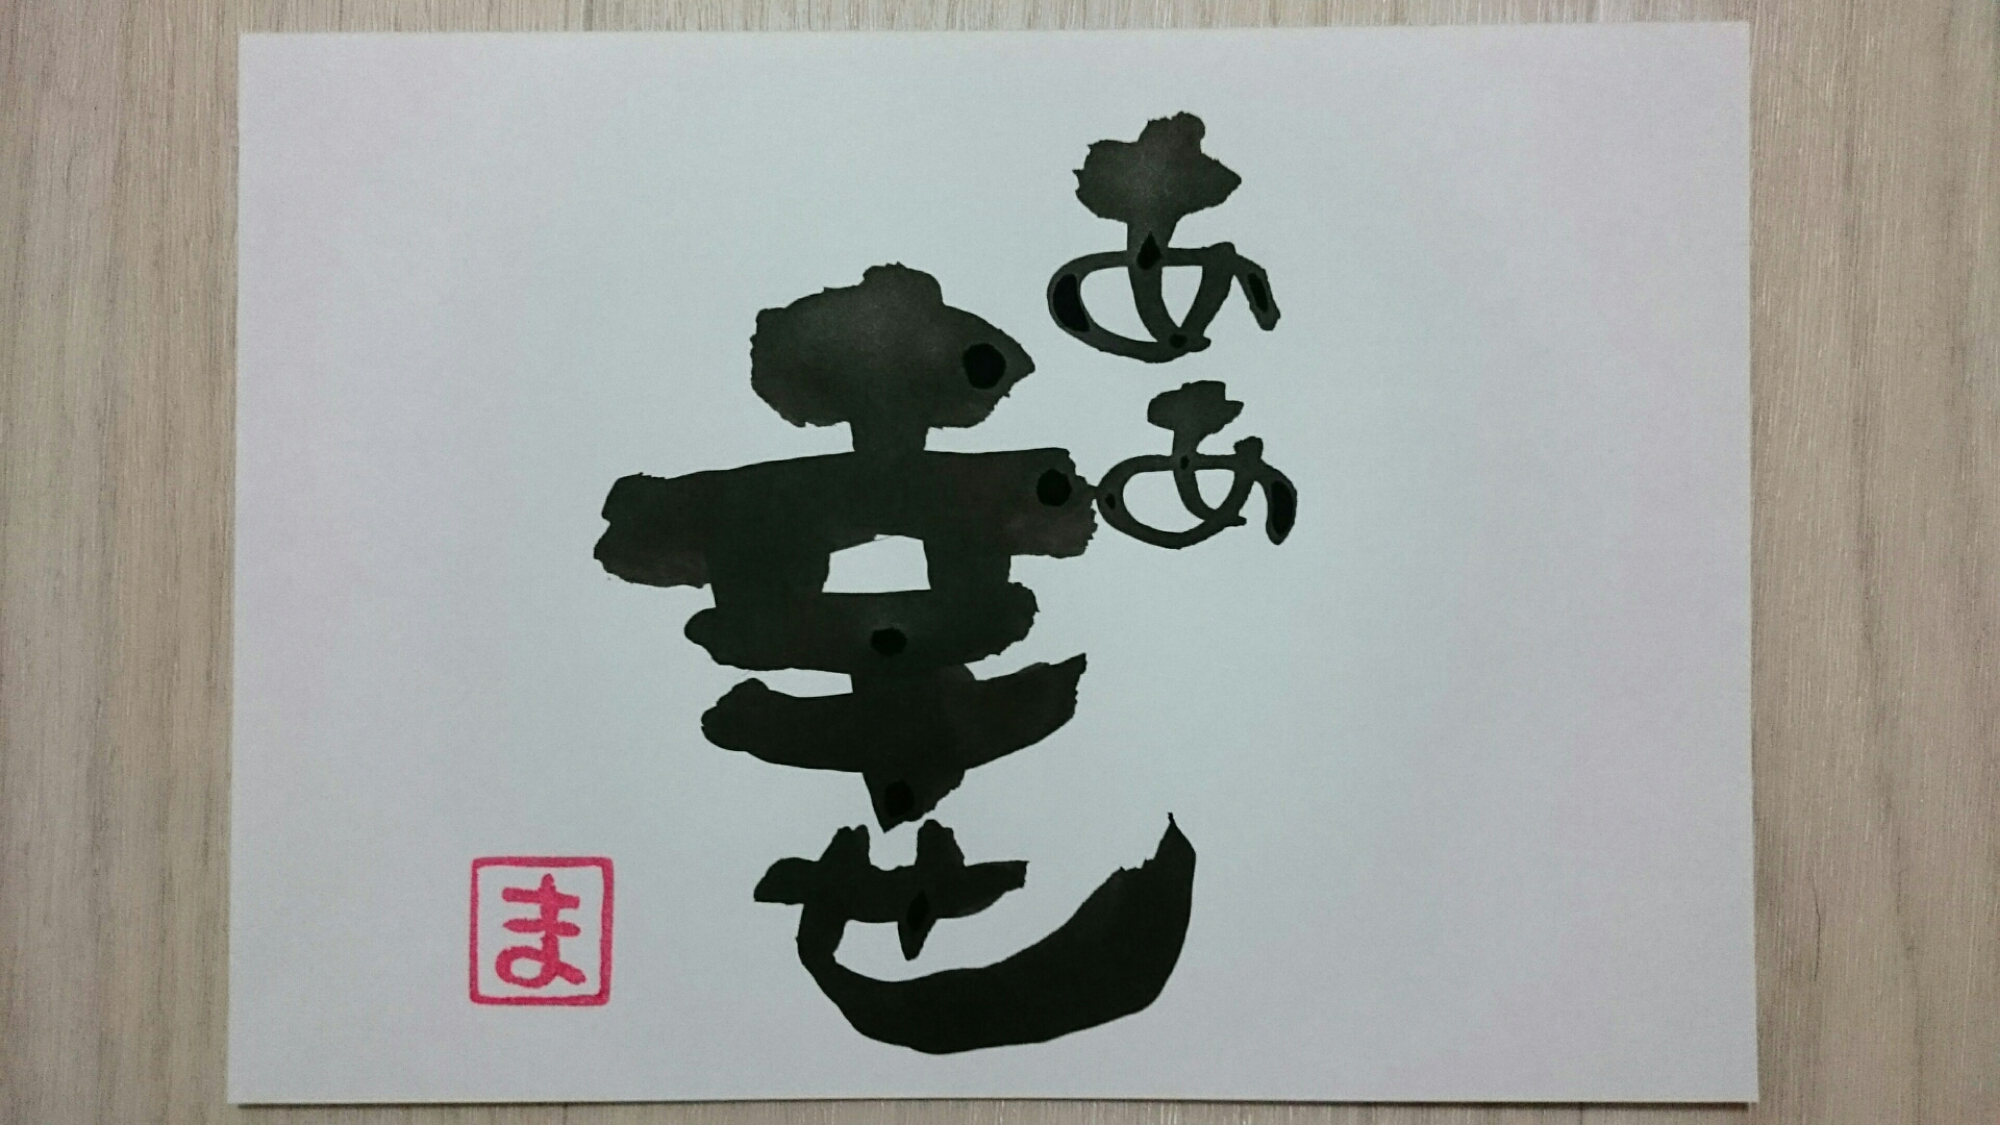 ああ
幸せ
ま